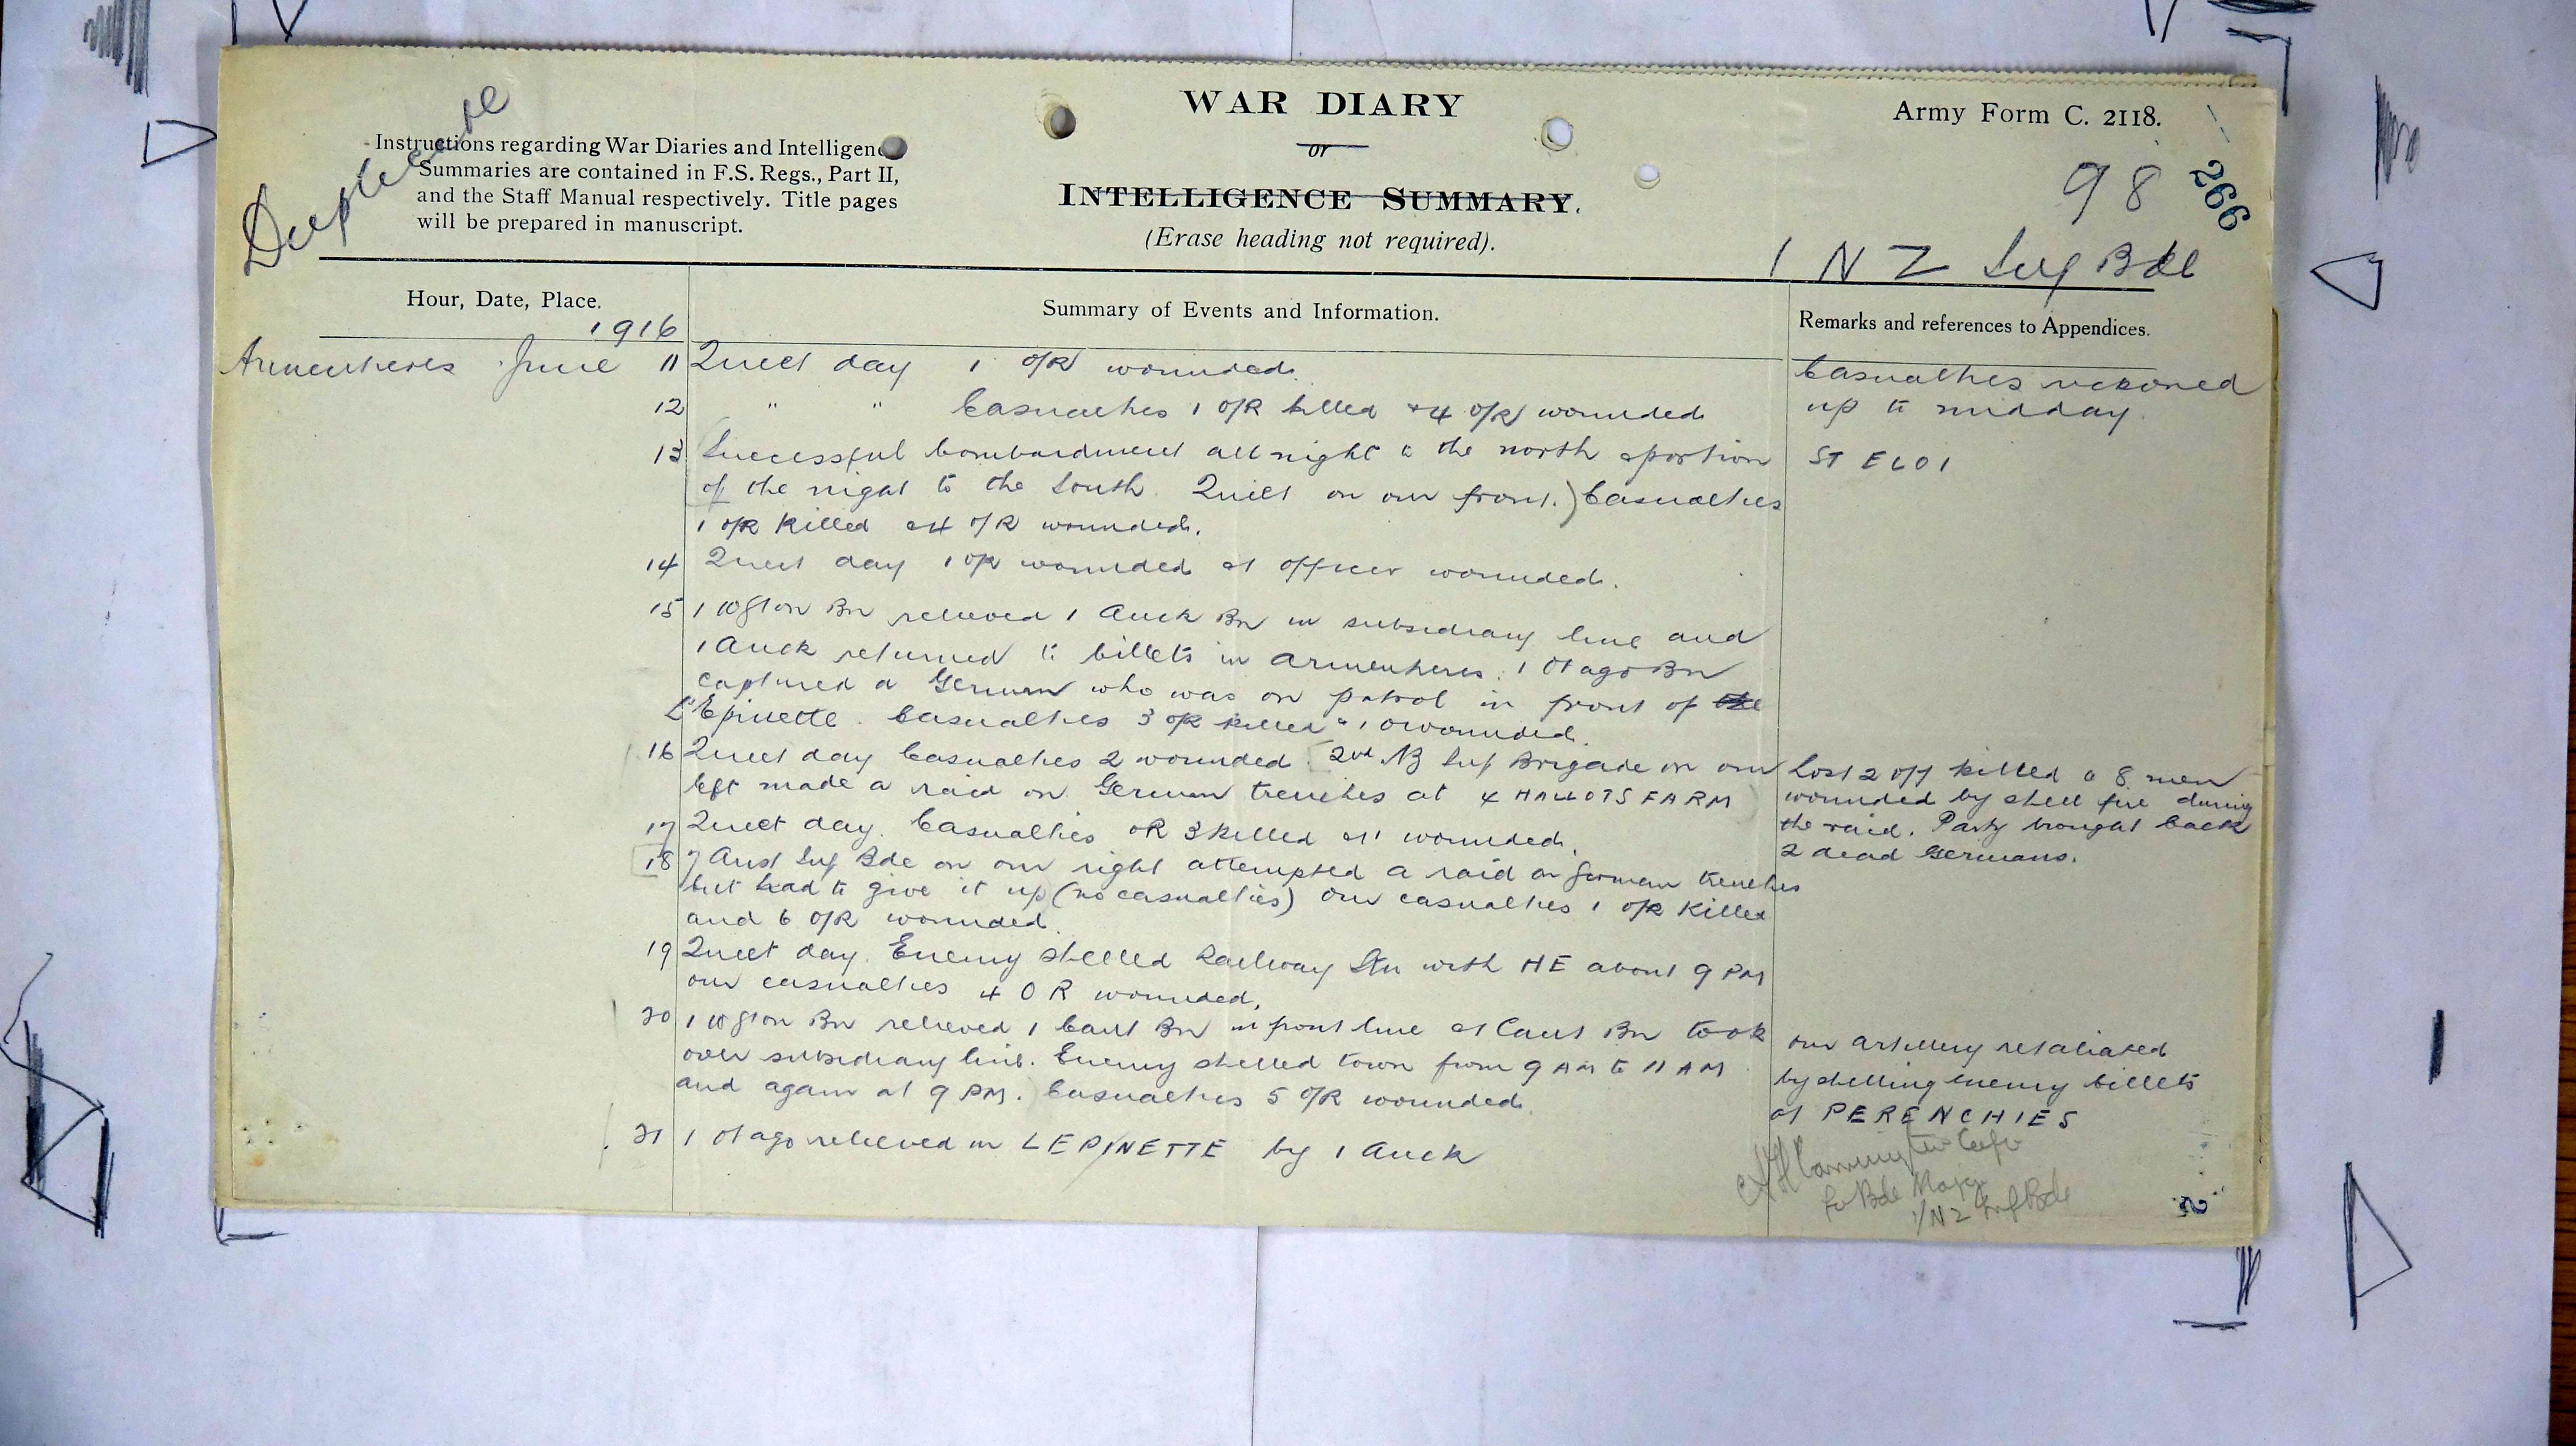 Duplicate
Instructions regarding War Diaries and Intelligence
Summaries are contained in F.S. Regs., Part II,
and the Staff Manual respectively. Title pages
will be prepared in manuscript.
WAR DIARY
or
INTELLIGENCE SUMMARY.
(Erase heading not required).
Army Form C. 2118.
98
266
1 N Z Inf Bde
Hour, Date, Place.
Summary of Events and Information.
Remarks and references to Appendices.
1916
Armentieres June 11 Quiet day 1 O/R wounded.
Casualties reckoned
up to midday.
12 " " Casualties 1 O/R killed + 4 O/R wounded
13 Successful bombardment all night to the north & portion
ST ELOI
of the night to the South. Quiet on our front.) Casualties
1 O/R Killed & 4 O/R wounded.
14 Quiet day 1 O/R wounded & 1 officer wounded.
15 1 Wgton Bn relieved 1 Auck Bn in subsidiary line and
1 Auck returned to billets in Armentieres. 1 Otago Bn
captured a German who was on patrol in front of the
L'Epinette. Casualties 3 O/R killed & 1 O wounded.
16 Quiet day Casualties 2 wounded. 2nd NZ Inf Brigade on our
left made a raid on German trenches at 4 HALLOTS FARM
Lost 2 off killed & 8 men
wounded by shell fire during
the raid. Party brought back
2 dead Germans.
17 Quiet day. Casualties OR 3 killed & 1 wounded.
18 7 Aust Inf Bde on our right attempted a raid on German trenches
but had to give it up (no casualties) Our casualties 1 O/R Killed
and 6 O/R wounded.
19 Quiet day. Enemy shelled Railway Stn with HE about 9 PM
our casualties 4 OR wounded.
20 1 Wgton Bn relieved 1 Cant Bn in front line & 1 Cant Bn took
over subsidiary line. Enemy shelled town from 9 AM to 11 AM
and again at 9 PM. Casualties 5 O/R wounded.
Our artillery retaliated
by shelling enemy billets
at PERENCHIES
21 1 Otago relieved in LEPINETTE by 1 Auck
for Bde Major
1/NZ Inf Bde
2